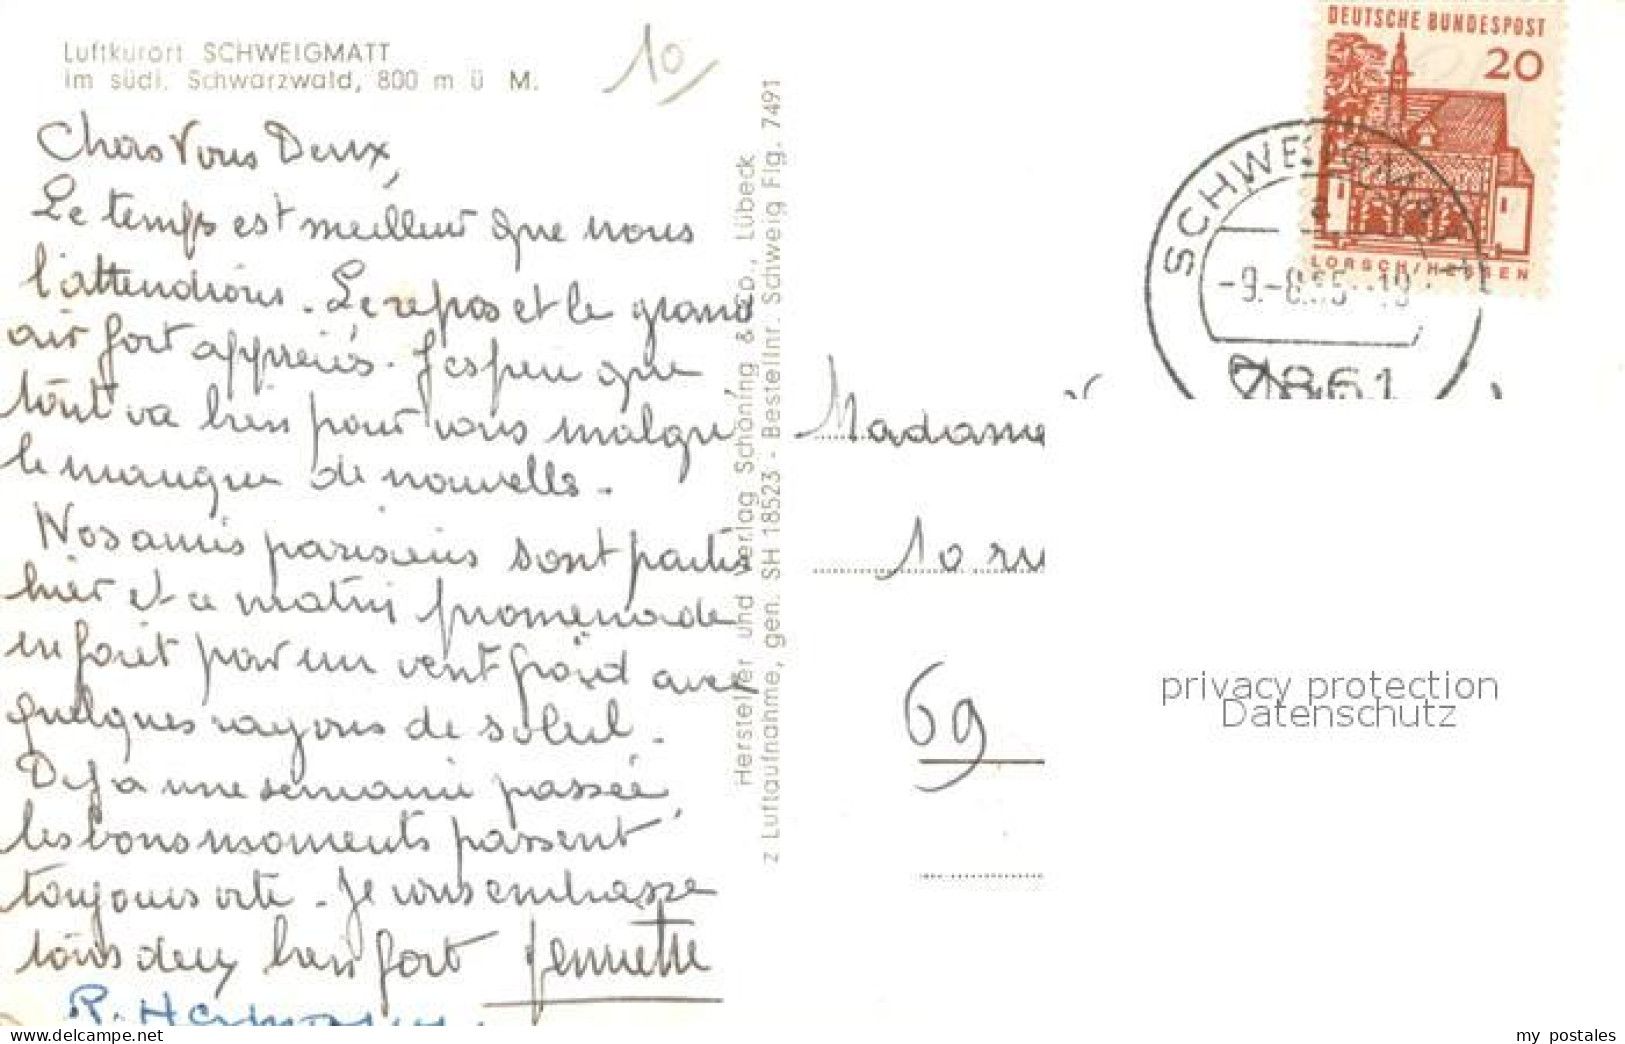 Luftkurort SCHWEIGMATT
im südl. Schwarzwald, 800 m ü M.
10
Chers Vous Deux,
Le temps est meilleur que nous
l'attendions. Le repos et le grand
air fort appréciés. J'espère que
tout va bien pour vous malgré
le manque de nouvelles.
Nos amis parisiens sont partis
hier et ce matin promenade
en forêt par un vent froid avec
quelques rayons de soleil.
Déjà une semaine passée,
les bons moments passent
toujours vite. Je vous embrasse
tous deux bien fort Jennette
Hersteller und Verlag Schöning & Co., Lübeck
z Luftaufnahme, gen. SH 18523 - Bestellnr. Schweig Flg. 7491
DEUTSCHE BUNDESPOST
20
LORSCH/HESSEN
SCHWEIGMATT
a
-9.-8.65-19
7861
Madame
10 ru
69
privacy protection
Datenschutz
www.delcampe.net
my_postales